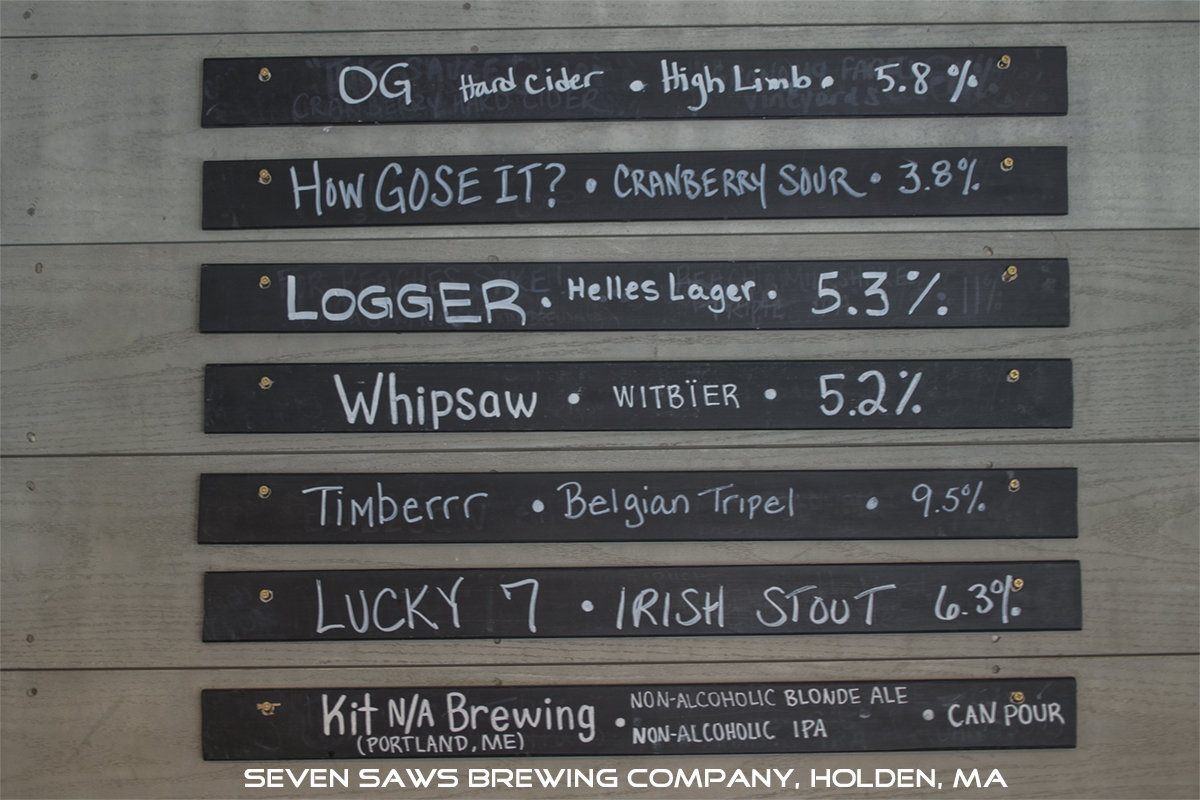 OG Hard Cider • High Limb • 5.8%
HOW GOSE IT? • CRANBERRY SOUR • 3.8%
LOGGER • Helles Lager • 5.3%
Whipsaw • WITBÏER • 5.2%
Timberrr • Belgian Tripel • 9.5%
LUCKY 7 • IRISH STOUT 6.3%
Kit N/A Brewing • NON-ALCOHOLIC BLONDE ALE • CAN POUR
(PORTLAND, ME) NON-ALCOHOLIC IPA
SEVEN SAWS BREWING COMPANY, HOLDEN, MA